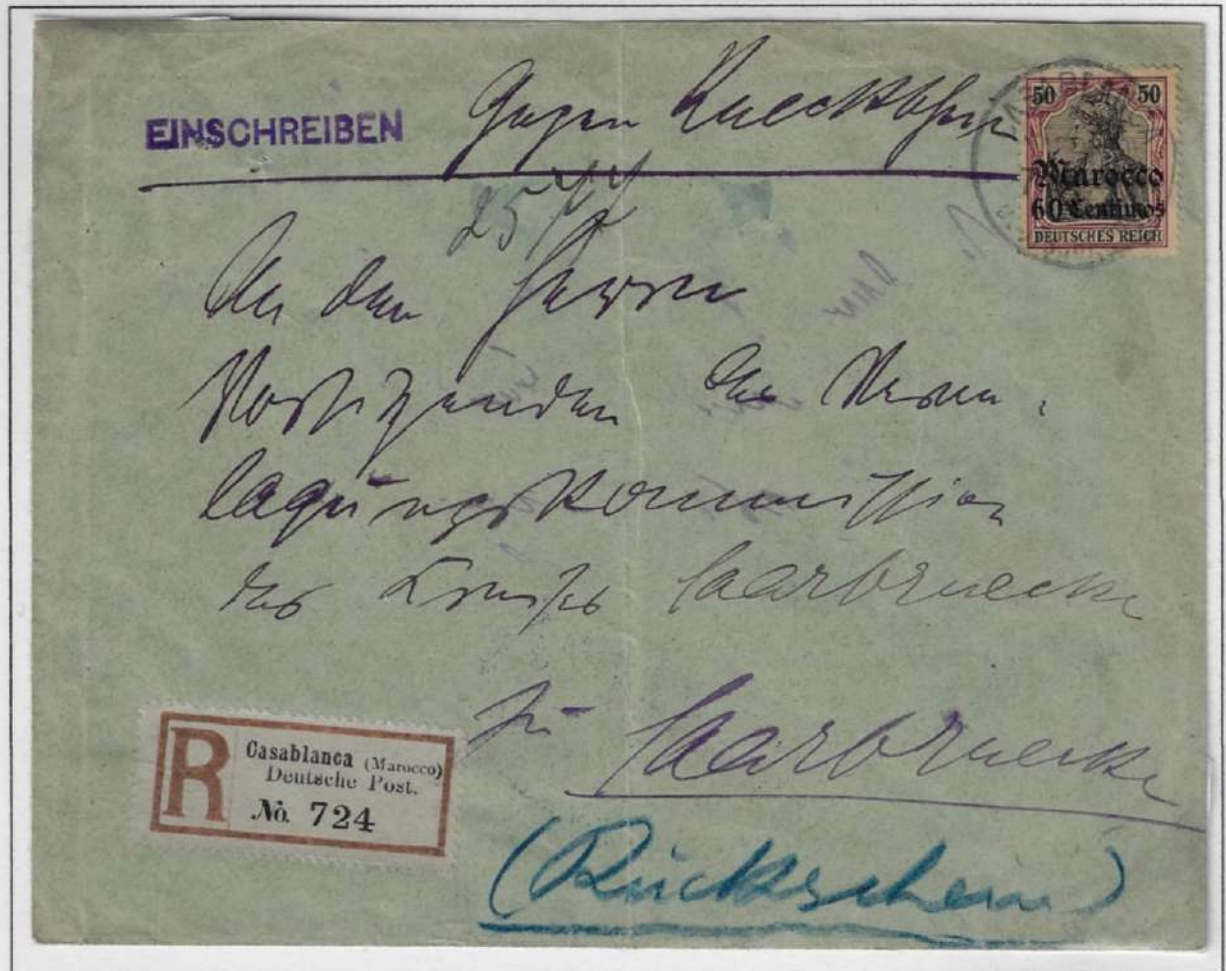 EINSCHREIBEN
Gegen Rueckschein
50 50
Marocco
60 Centimos
DEUTSCHES REICH
An den Herrn
Vorsitzenden der Veran-
lagungskommission
des Kreises Saarbruecken
zu Saarbruecken
R
Casablanca (Marocco)
Deutsche Post.
No. 724
(Rückschein)